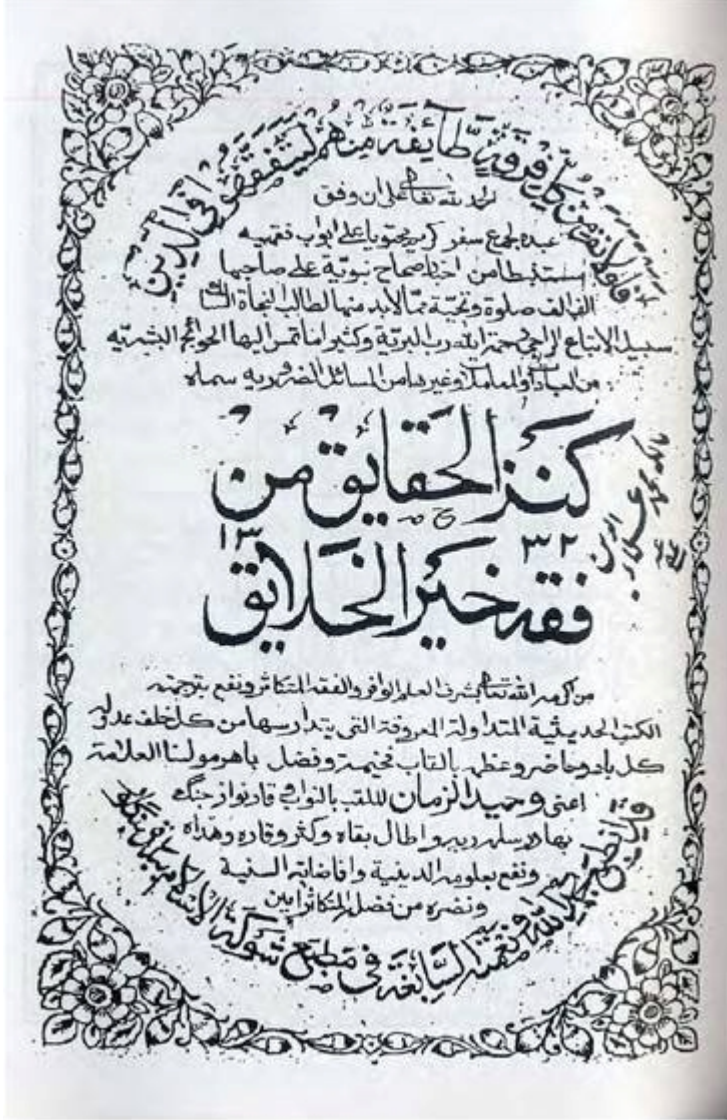 فلولا نفر من كل فرقة طائفة منهم ليتفقهوا فى الدين
الحمد لله تعالى على ان وفق
عبده لجمع سفر كريم يحتوى على ابواب فقهيه
استنبطها من احاديث صحاح نبوية على صاحبها
الف الف صلوة وتحية مما لابد منها لطالب النجاة السالك
سبيل الاتباع الراجى رحمة الله رب البرية وكثيرا ما تمس اليها الحوائج البشريه
من العبادات والمعاملات وغيرها من المسائل الضروريه سماه
كنز الحقايق من
١٣ ٣٢ ھ
فقه خير الخلايق
من اكرمه الله تعالى بشرف العلم الوافر والفقه المتكاثر ونفع بترجمته
الكتب الحديثية المتداولة المعروفة التى يتدارسها من كل خلف عدوله
كل باد وحاضر وعظمه بالقاب فخيمة وفضل باهر مولنا العلامة
اعنى وحيد الزمان الملقب بالنواب وقار نواز جنك
بهادر سلمه ربه واطال بقاه وكثر وقاره وهداه
ونفع بعلومه الدينية وافاضاته السنية
ونضره من فضله المتكاثر امين
قد انطبع بحمد الله ونعمته السابغة فى مطبع شوكة الاسلام بنكلور